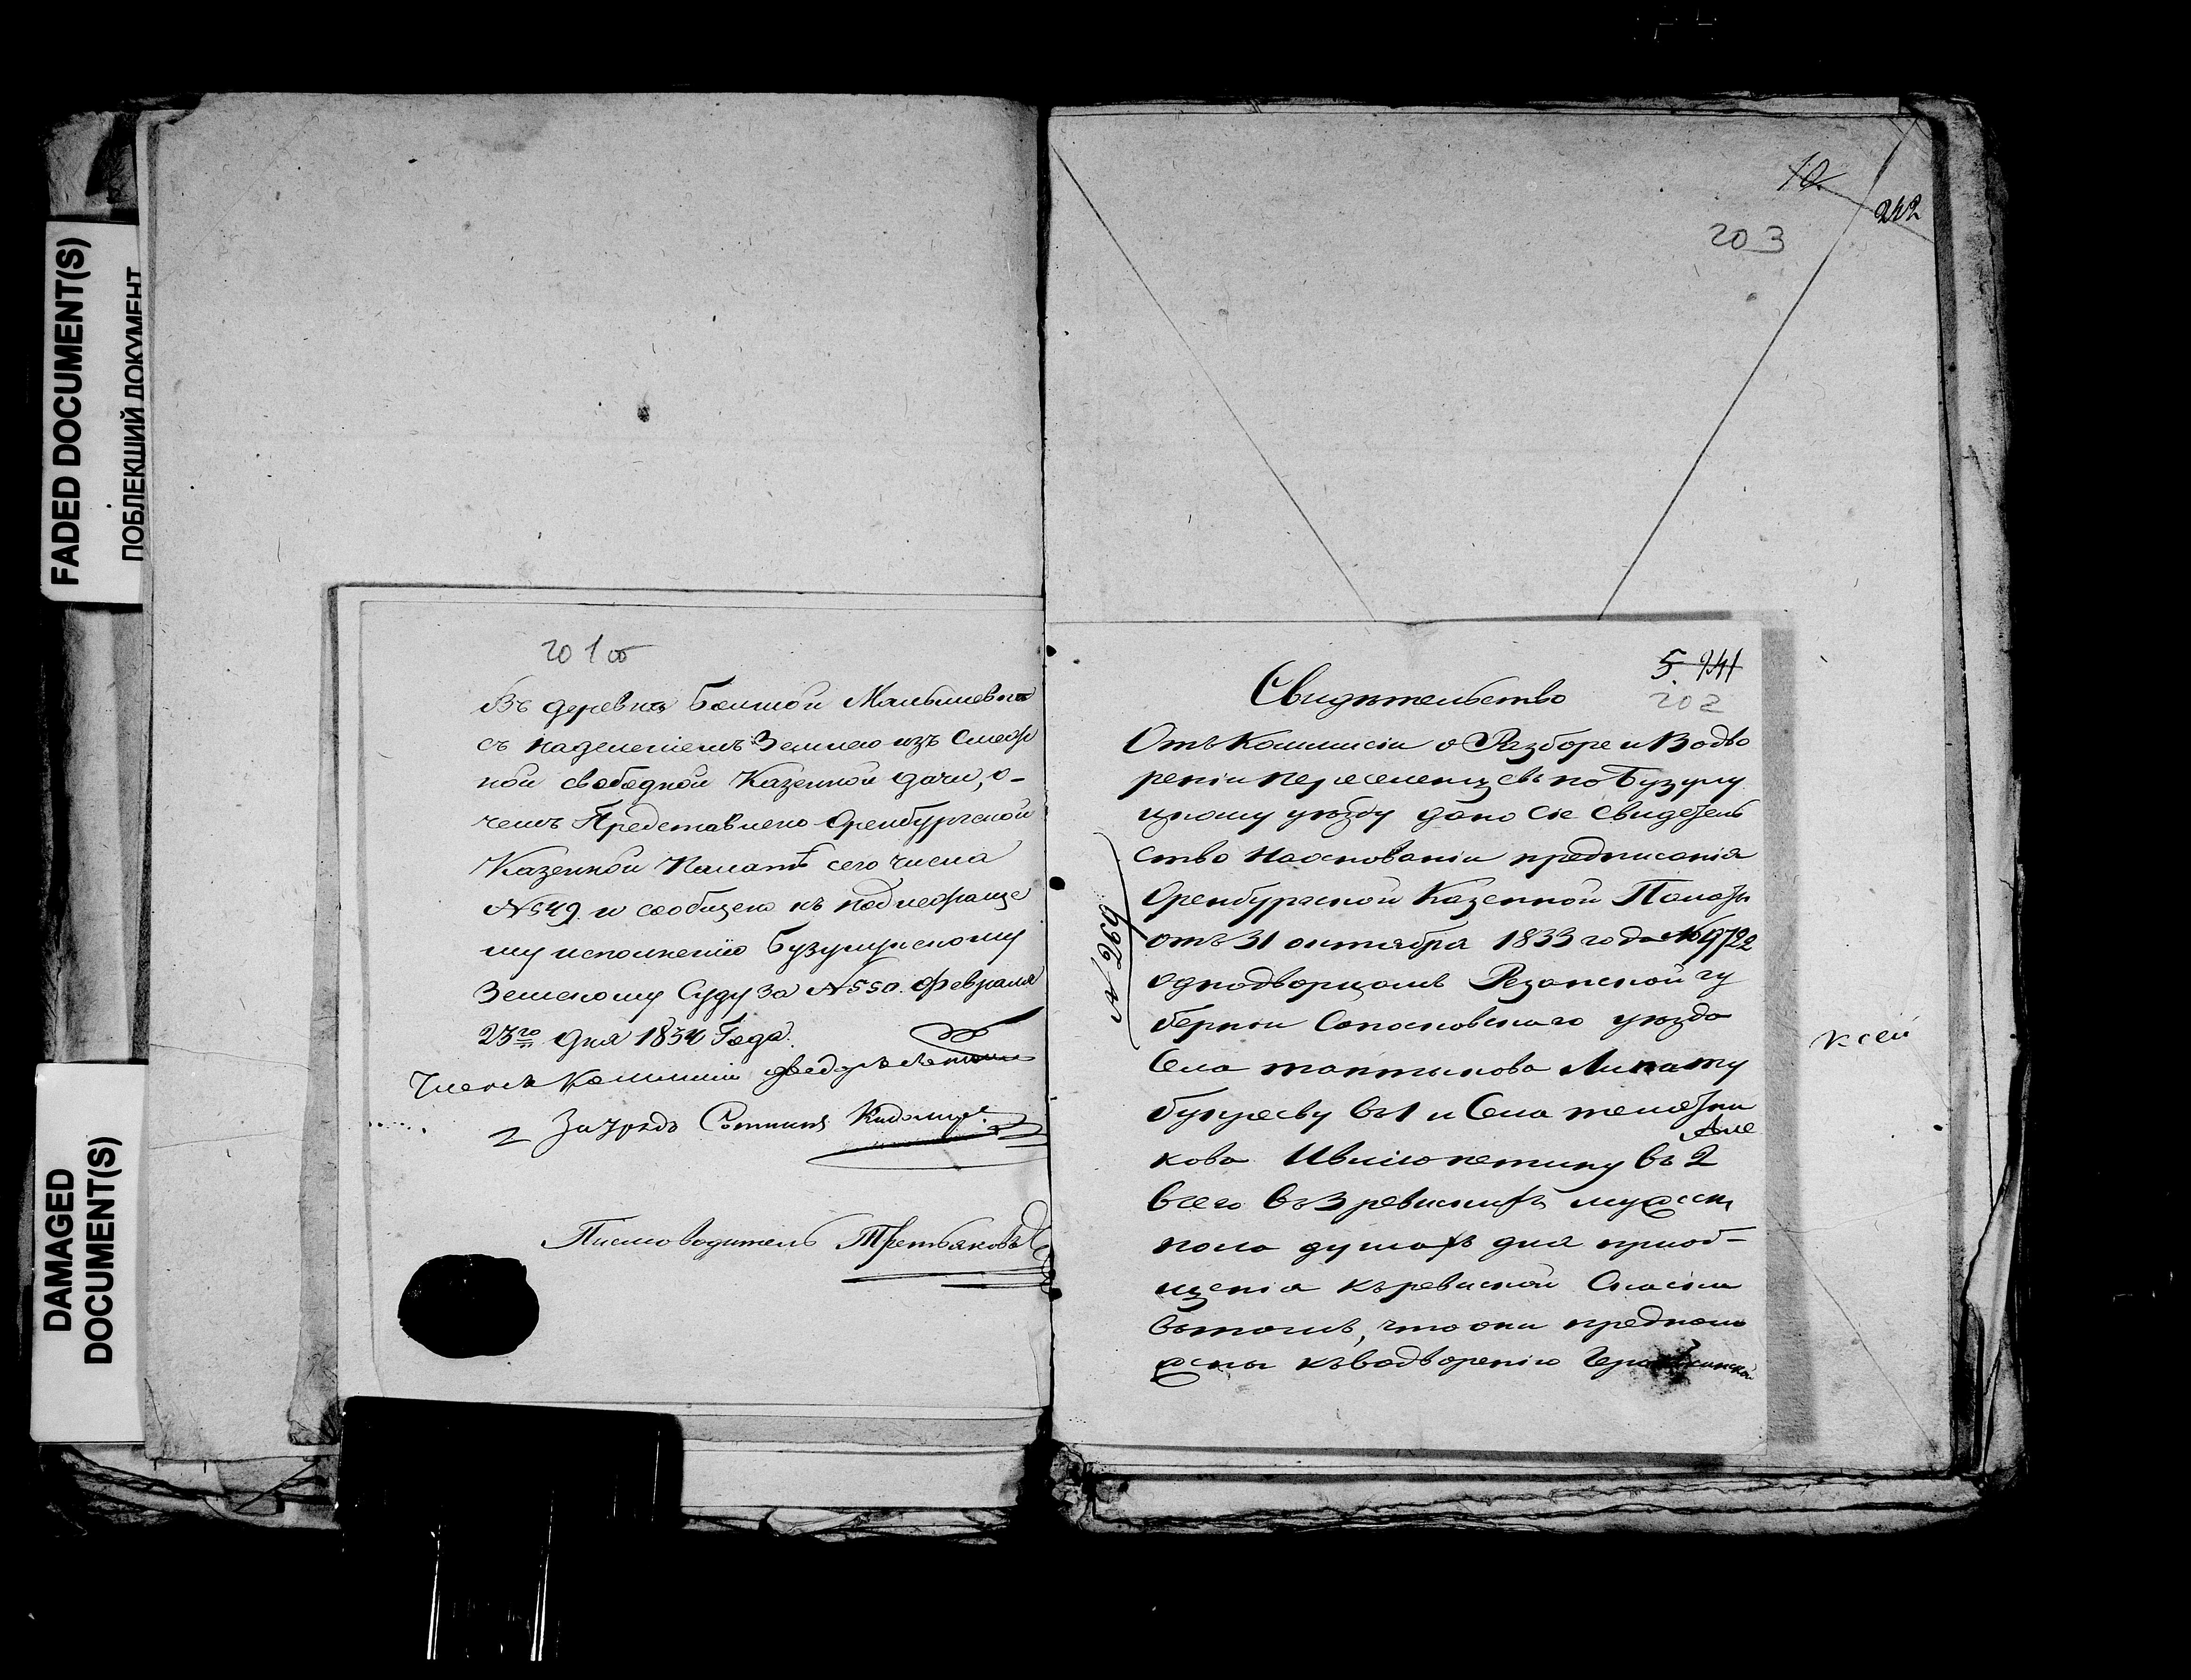 FADED DOCUMENT(S)
ПОБЛЕКШИЙ ДОКУМЕНТ
DAMAGED
DOCUMENT(S)
201 об
Въ деревнѣ Малышевкѣ
съ наделениемъ Землею изъ
ной свободной Казенной дачи, о-
чемъ Представлено Оренбургской
Казенной Палатѣ сего числа
№ 549. и сообщено къ
му исполнению Бузулукскому
Земскому Суду за № 550. февраля
23го дня 1834 Года.
Членъ Комиссии
За Сотникъ
Писмоводитель Третьяковъ
10
242
203
5. 241
202
Свидѣтельство
Отъ Коммисіи о Разборе и Водво
реніи переселенцевъ по Бузулу
цкому уѣзду дано Сіе Свидетель
ство на основаніи предписанія
Оренбургской Казенной Палаты
отъ 31 октября 1833 года № 9722
однодворцамъ Резанской гу
берніи Сапожковского уезда
Села
въ 1 и Села
кова въ 2
всего въ 3 ревискихъ мужеск
пола душахъ для приоб-
щенія къ ревиской Скаски
въ томъ, что они предполо
жены къ водворенію
№ 269